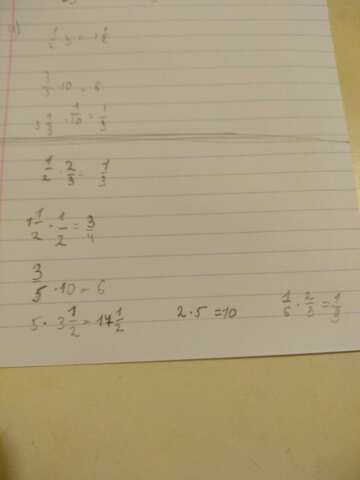 a)
1/2 · 3 = 1 1/2
3/5 · 10 = 6
3 1/3 · 1/10 = 1/3
1/2 · 2/3 = 1/3
1 1/2 · 1/2 = 3/4
3/5 · 10 = 6
5 · 3 1/2 = 17 1/2 2 · 5 = 10 1/6 · 2/3 = 1/9